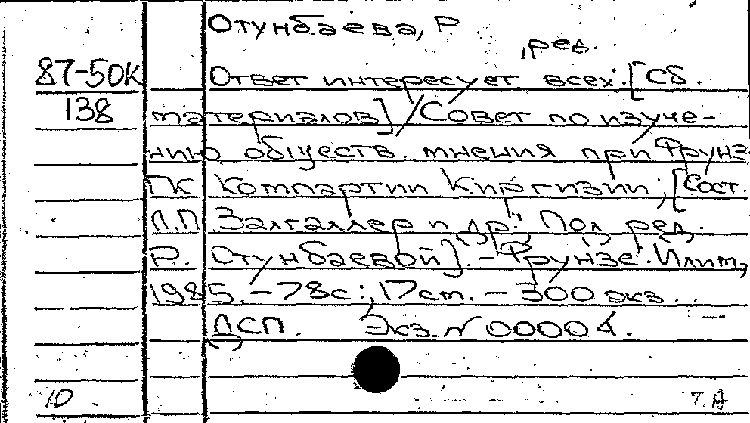 Отунбаева, Р
, ред.
87-50К Ответ интересует всех: [Сб.
138 материалов] / Совет по изуче-
нию обществ. мнения при Фрунз.
ГК Компартии Киргизии; [Сост.
Л.П. Залгаллер и др.; Под ред.
Р. Отунбаевой]. - Фрунзе: Илим,
1985. - 78 с.; 17 см. - 300 экз.
ДСП. Экз. N 00004.
10 т. А